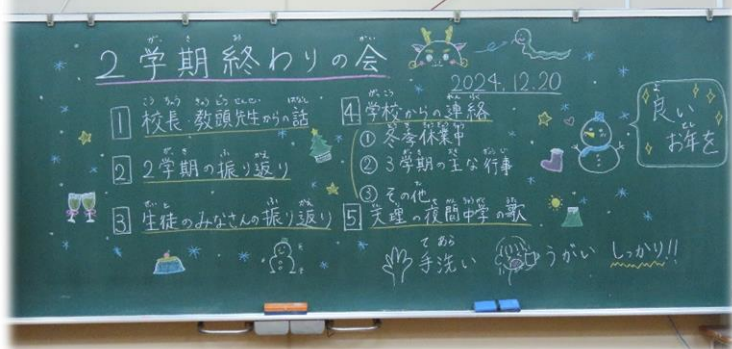 2学期終わりの会
2024.12.20
1 校長・教頭先生からの話
2 2学期の振り返り
3 生徒のみなさんの振り返り
4 学校からの連絡
① 冬季休業中
② 3学期の主な行事
③ その他
5 天理の夜間中学の歌
良い
お年を
手洗い うがい しっかり!!